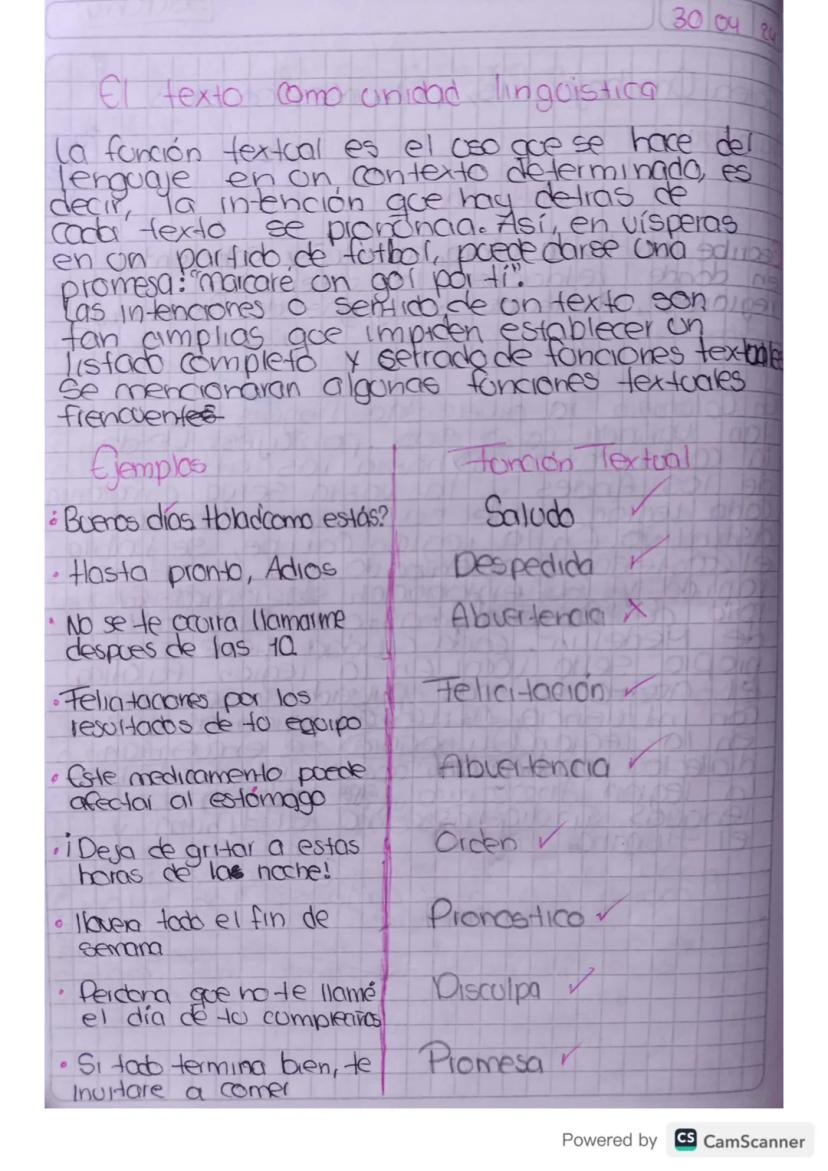 30 04 24
El texto como unidad lingüistica
La función textual es el uso que se hace del
lenguaje en un contexto determinado, es
decir, la intención que hay detras de
cada texto se pronuncia. Así, en vísperas
en un partido de futbol, puede darse una
promesa: "marcare un gol por ti".
Las intenciones o sentido de un texto son
tan amplias que impiden establecer un
listado completo y serrado de funciones textuales
Se mencionaran algunas funciones textuales
frencuentes
Ejemplos Función Textual
Buenos días Hola ¿como estás? Saludo ✓
Hasta pronto, Adios Despedida ✓
No se te ocurra llamarme Abvertencia X
despues de las 10
Felicitaciones por los Felicitación ✓
resultados de tu equipo
Este medicamento puede Abvertencia ✓
afectar al estómago
¡Deja de gritar a estas Orden ✓
horas de las noche!
llovera todo el fin de Pronostico ✓
semana
Perdona que no te llamé Disculpa ✓
el día de tu cumpleaños
Si todo termina bien, te Promesa ✓
invitare a comer
Powered by CS CamScanner